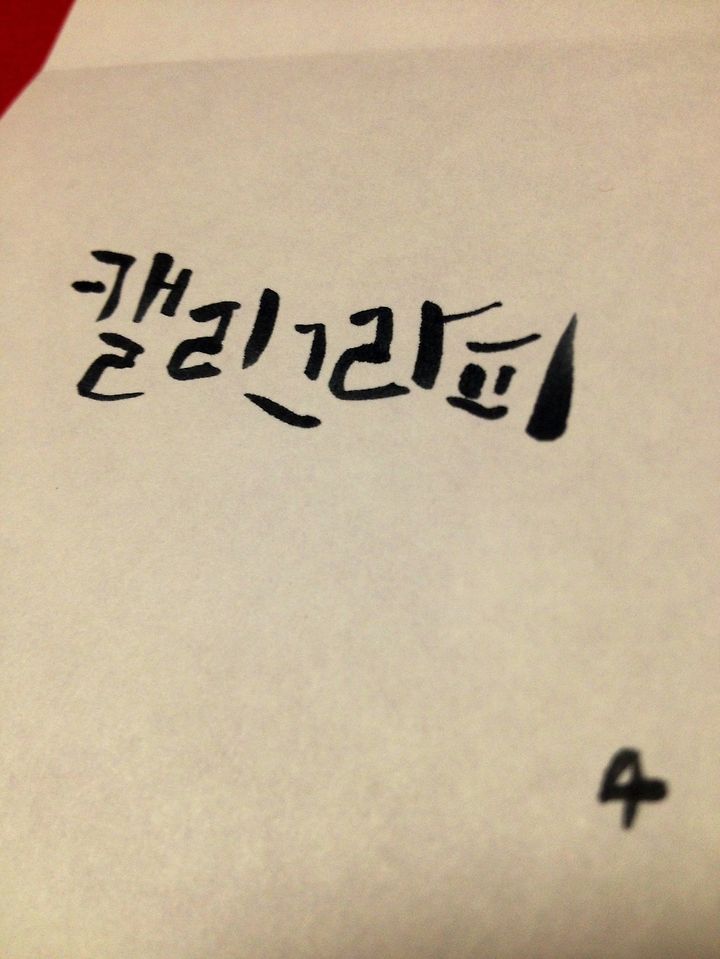 캘리그라피
4